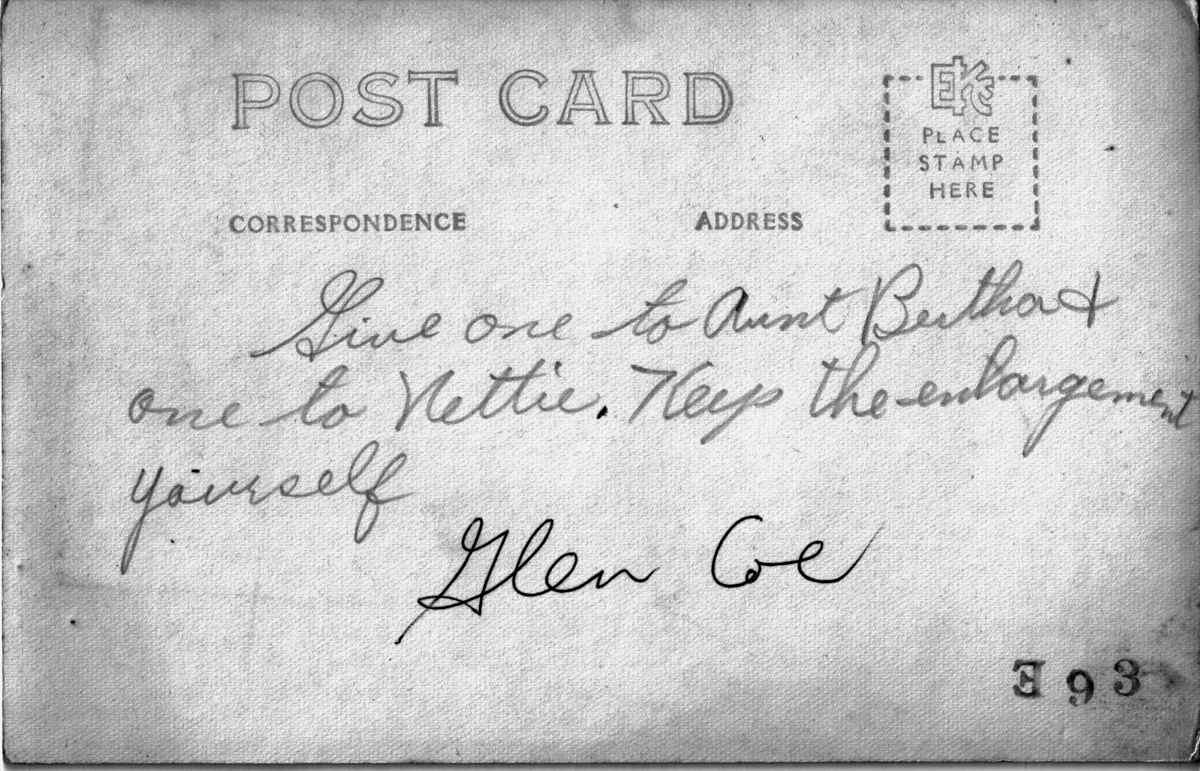 POST CARD
EKC
PLACE
STAMP
HERE
CORRESPONDENCE
ADDRESS
Give one to Aunt Bertha &
one to Nettie. Keep the enlargement
yourself
Glen Coe
E93